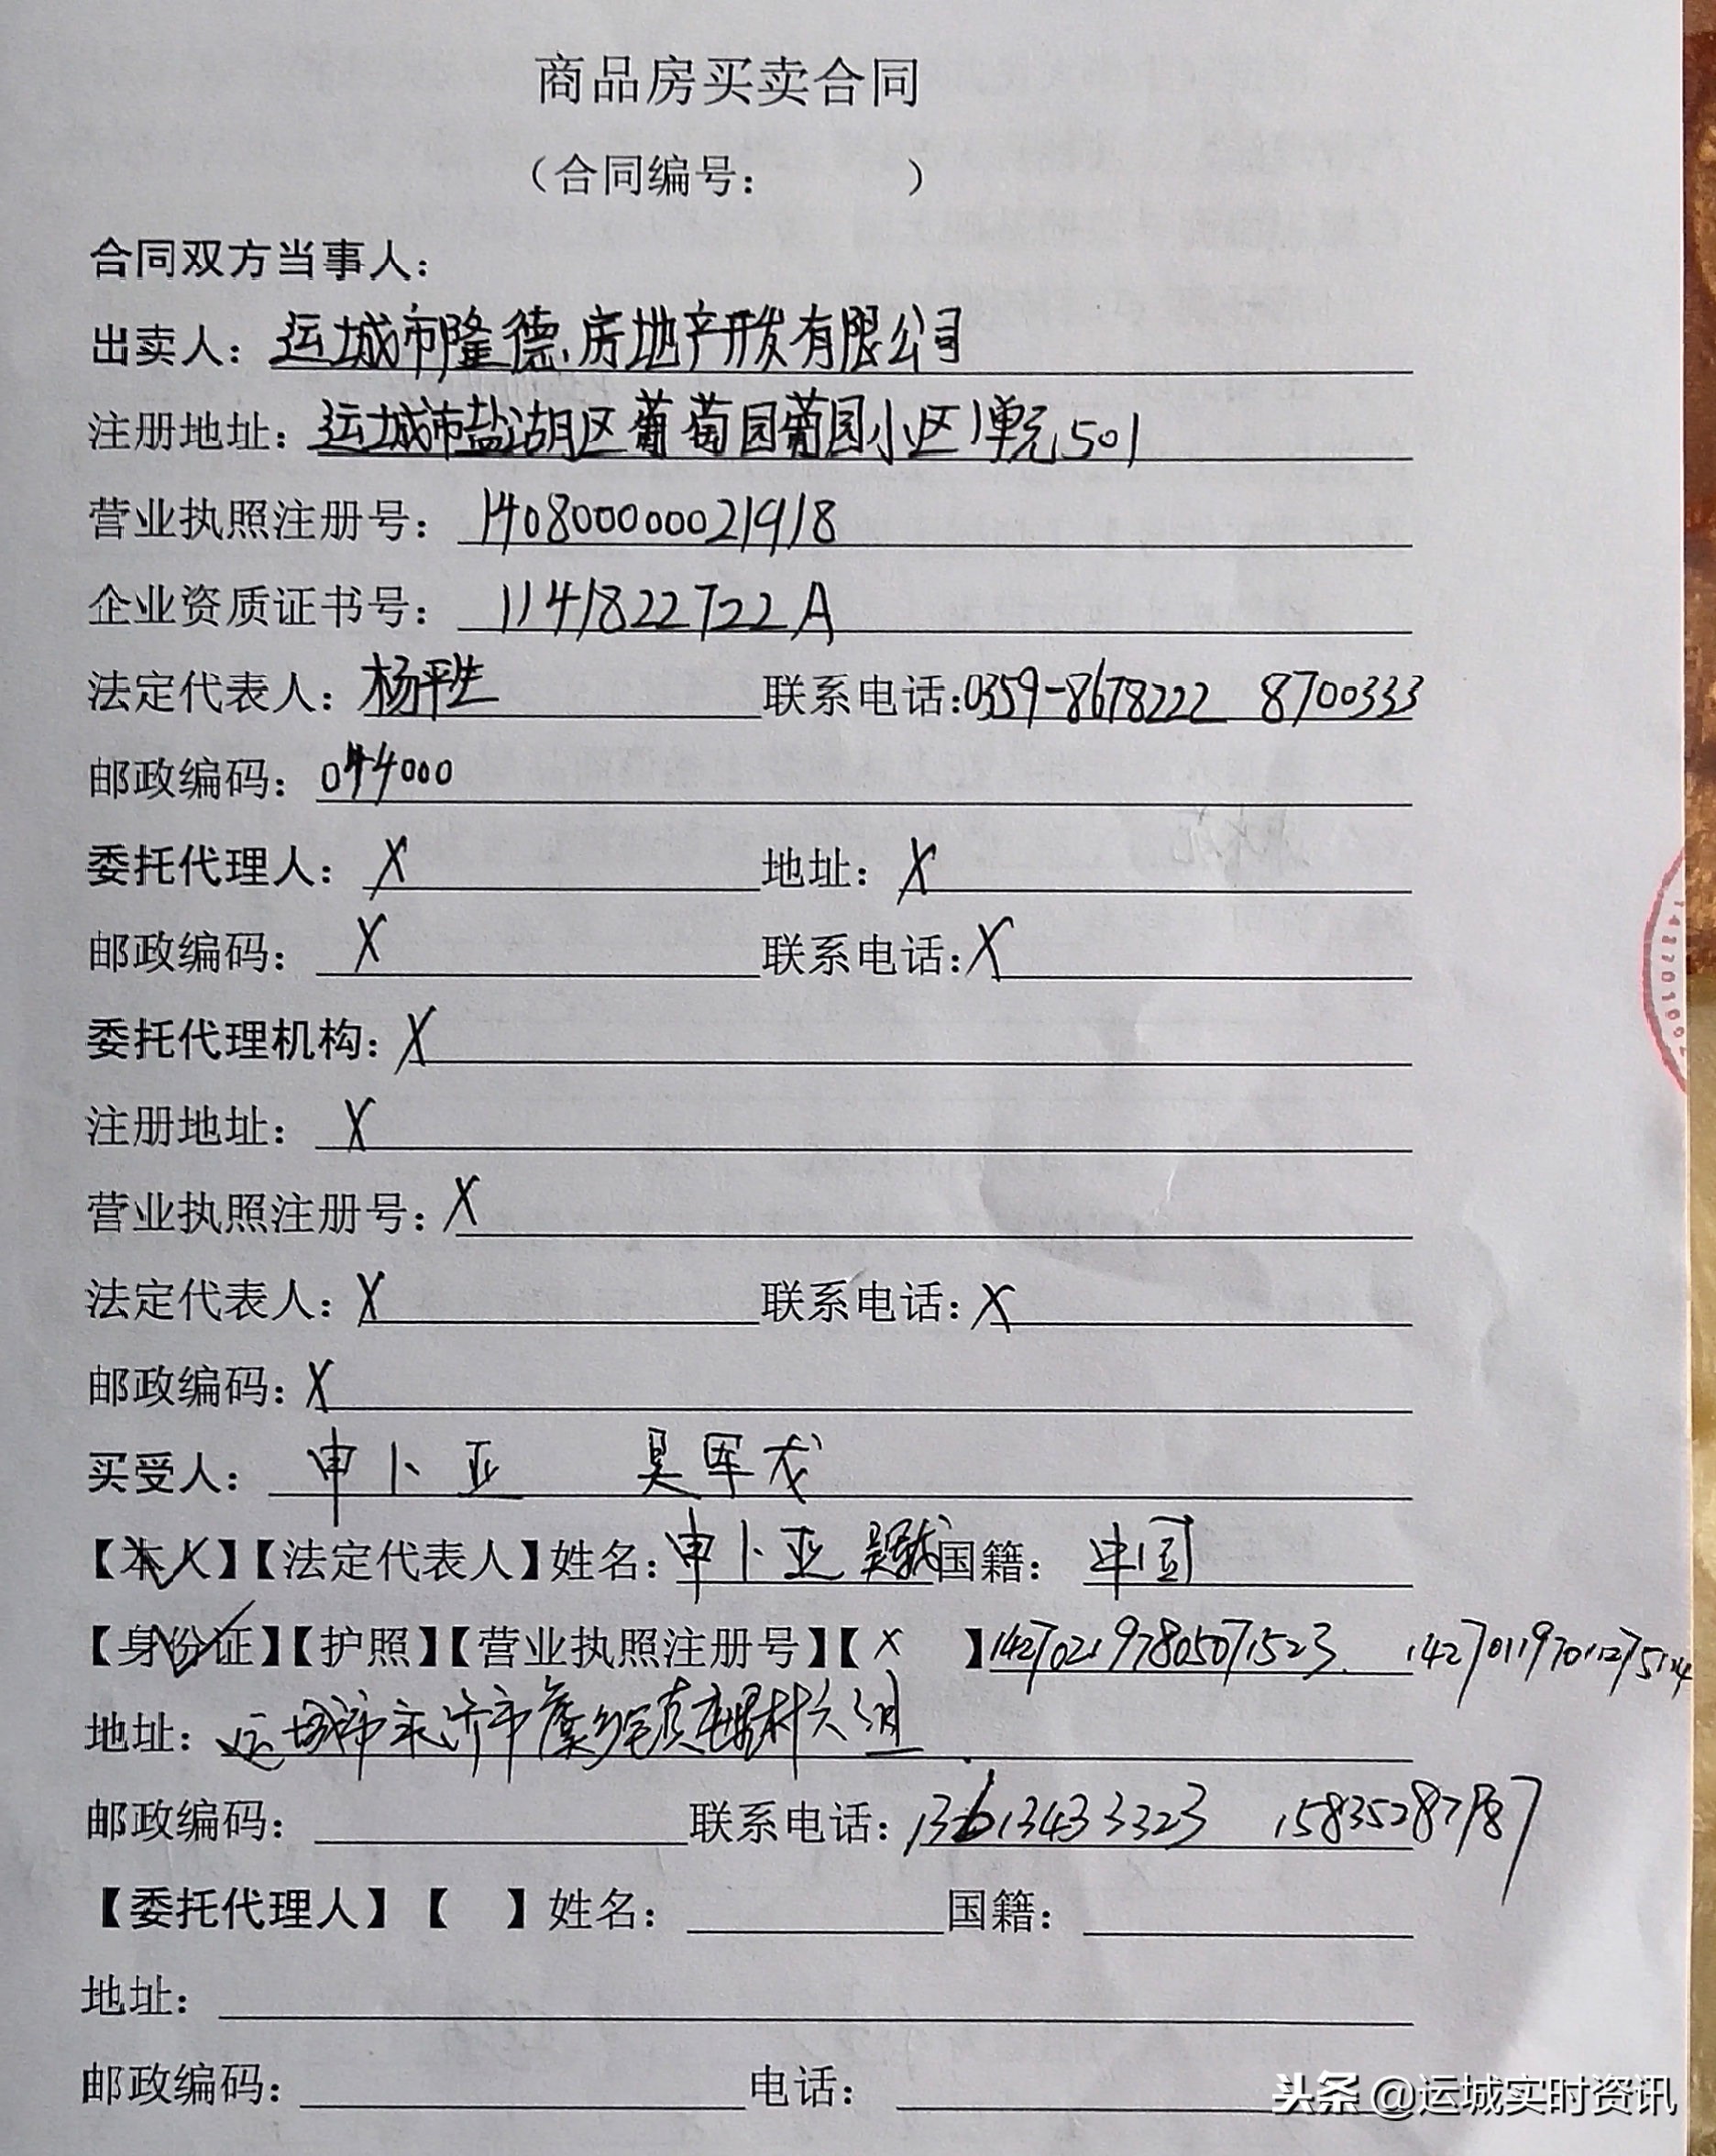 商品房买卖合同
（合同编号：　　　）
合同双方当事人：
出卖人：运城市隆德房地产开发有限公司
注册地址：运城市盐湖区葡萄园葡园小区1单元501
营业执照注册号：140800000021918
企业资质证书号：1141822722A
法定代表人：杨平生 联系电话：0359-8678222 8700333
邮政编码：044000
委托代理人：X 地址：X
邮政编码：X 联系电话：X
委托代理机构：X
注册地址：X
营业执照注册号：X
法定代表人：X 联系电话：X
邮政编码：X
买受人：申卜亚 吴军戎
【本人】【法定代表人】姓名：申卜亚 吴军戎 国籍：中国
【身份证】【护照】【营业执照注册号】【X】142702197805071523
地址：运城市永济市虞乡镇 村六组
邮政编码： 联系电话：13613433323 15835287787
【委托代理人】【　】姓名： 国籍：
地址：
邮政编码： 电话：
头条 @运城实时资讯